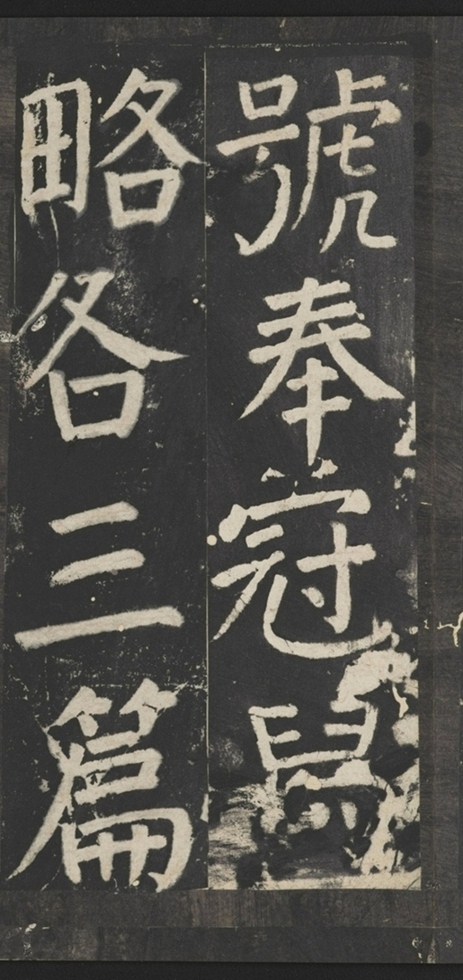 號奉冠
略各三篇